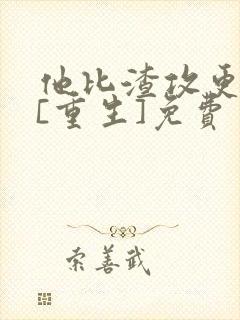 他比渣攻更
[重生]免费
索善武